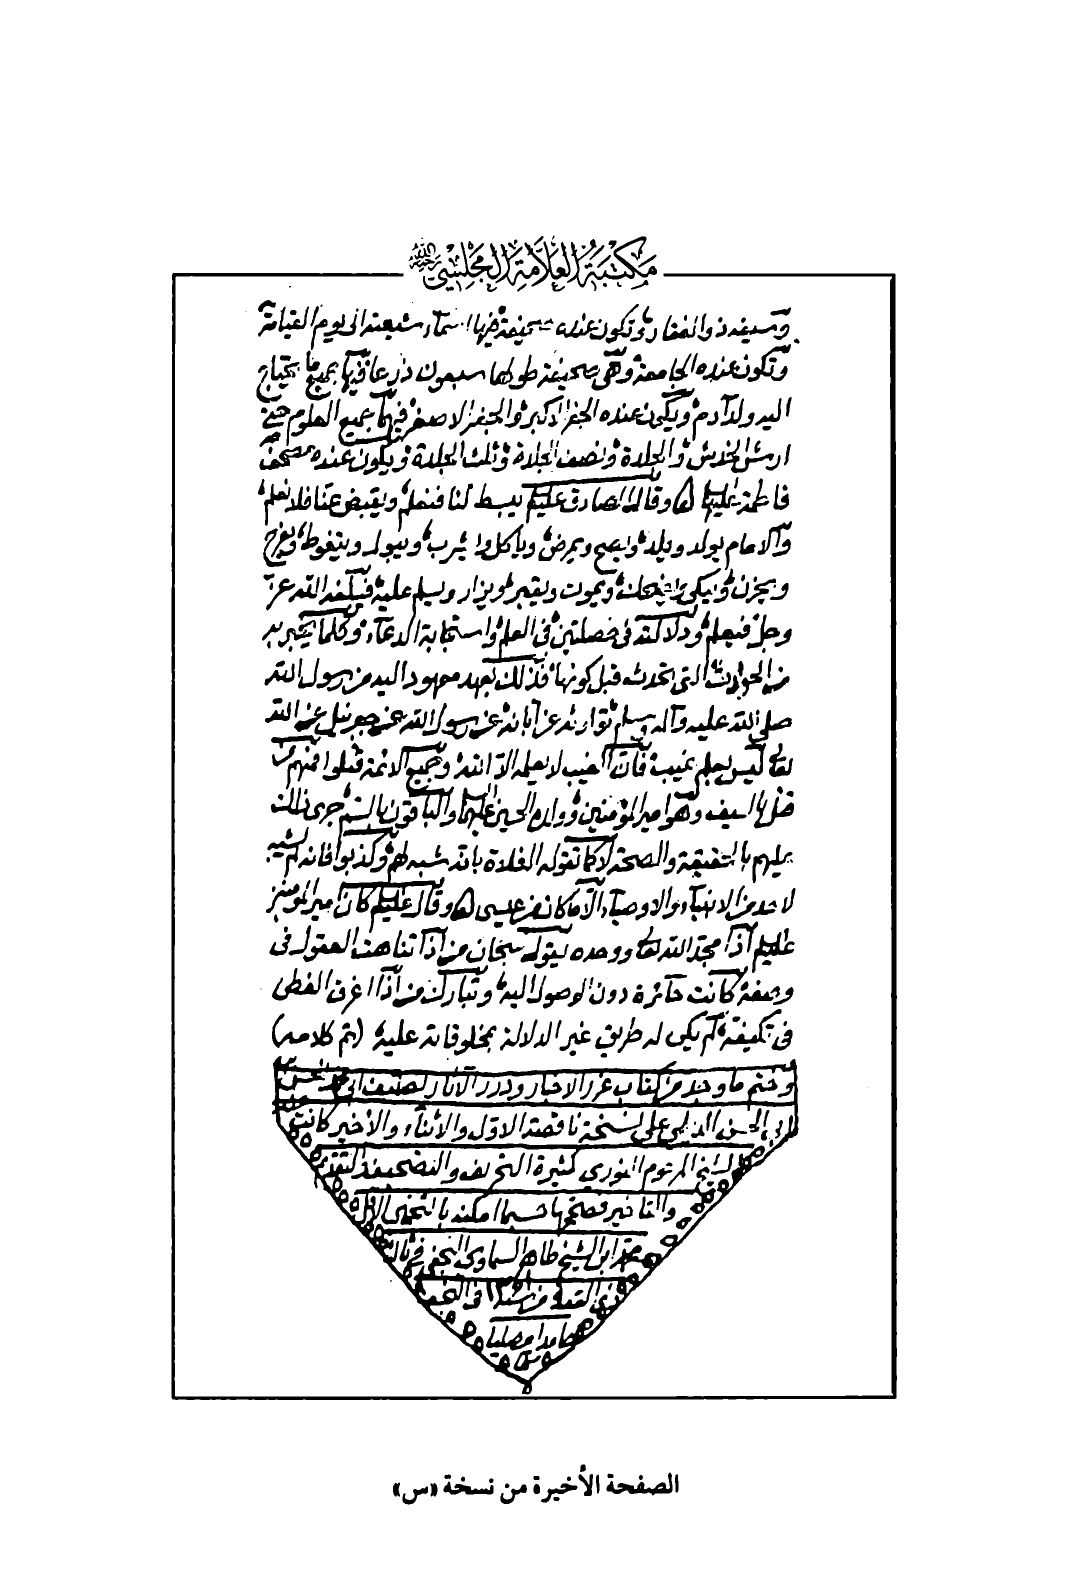 مكتبة العلامة المجلسي رحمه الله
وسيفه ذو الفقار وتكون عنده صحيفة فيها اسماء شيعته الى يوم القيامة
وتكون عنده الجامعة وهى صحيفة طولها سبعون ذرعا فيها جميع ما يحتاج
اليه ولد آدم ويكون عنده الجفر الاكبر والجفر الاصغر فيهما جميع العلوم حتى
ارش الخدش والجلدة ونصف الجلدة وثلث الجلدة ويكون عنده مصحف
فاطمة عليها وقال الصادق عليه يبسط لنا فنعلم ويقبض عنا فلا نعلم
والامام يولد ويلد ويصح ويمرض ويأكل ويشرب ويبول ويتغوط ويفرح
ويحزن ويبكى ويضحك ويموت ويقبر ويزار ويسلم عليه فيبلغه الله عز
وجل فيعلم ودلالته فى خصلتين فى العلم واستجابة الدعاء وكلما يخبر به
من الحوادث التى تحدث قبل كونها فذلك بعهد معهود اليه من رسول الله
صلى الله عليه وآله وسلم توارثه عن آبائه عن رسول الله عن جبرئيل عن الله
تعالى ليس بعلم غيب فان الغيب لا يعلمه الا الله وجميع الائمة قتلوا فمنهم من
قتل بالسيف وهو امير المؤمنين وولده الحسين عليهما والباقون بالسم جرى ذلك
عليهم بالحقيقة والصحة لا كما تقوله الغلاة بانه شبه لهم وكذبوا فانه لم يشبه
لاحد من الانبياء والاوصياء الا ما كان من عيسى وقال عليه كان امير المؤمنين
عليه اذا مجد الله تعالى ووحده يقول سبحان من اذا تناهت العقول فى
وصفه كانت حائرة دون الوصول اليه وتبارك من اذا اغرق الفطن
فى تكيفه لم يكن له طريق غير الدلالة بمخلوقاته عليه (تم كلامه)
وختم ما وجد من كتاب غرر الاخبار ودرر الآثار تصنيف ابى محمد الحسن
ابن ابى الحسن الديلمى على نسخة ناقصة الاول والاثناء والاخير كانت
للشيخ المرحوم النورى كثيرة التحريف والتصحيف والتقديم
والتأخير فصححتها حسبما امكنه بالتخمين الاقل
محمد ابن الشيخ طاهر السماوى النجفى فى ثالث
ذى القعدة من فى النجف
حامدا مصليا
الصفحة الأخيرة من نسخة «س»